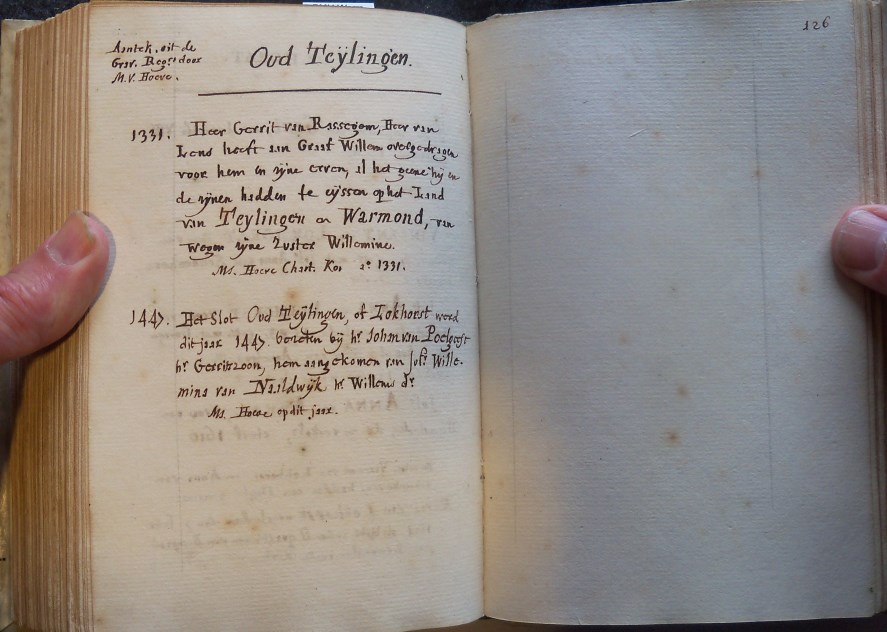 126
Aantek. uit de
Grav. Regrs door
M. V. Hoeve.
Oud Teÿlingen.
1331. Heer Gerrit van Rassegem, Heer van
Lens heeft aan Graaf Willem overgedragen
voor hem en zijne erven, al het geene hij en
de zijnen hadden te eÿssen op het Land
van Teylingen en Warmond, van
wegen zijne Zuster Willemine.
Ms. Hoeve Chart. Kor ao 1331.
1447. Het Slot Oud Teÿlingen, of Lokhorst werd
dit jaar 1447 bezeten bij hr Johan van Poelgeest
hr Gerritszoon, hem aangekomen van Jufr Wille-
mina van Naaldwÿk hr Willems dr
Ms. Hoeve op dit jaar.